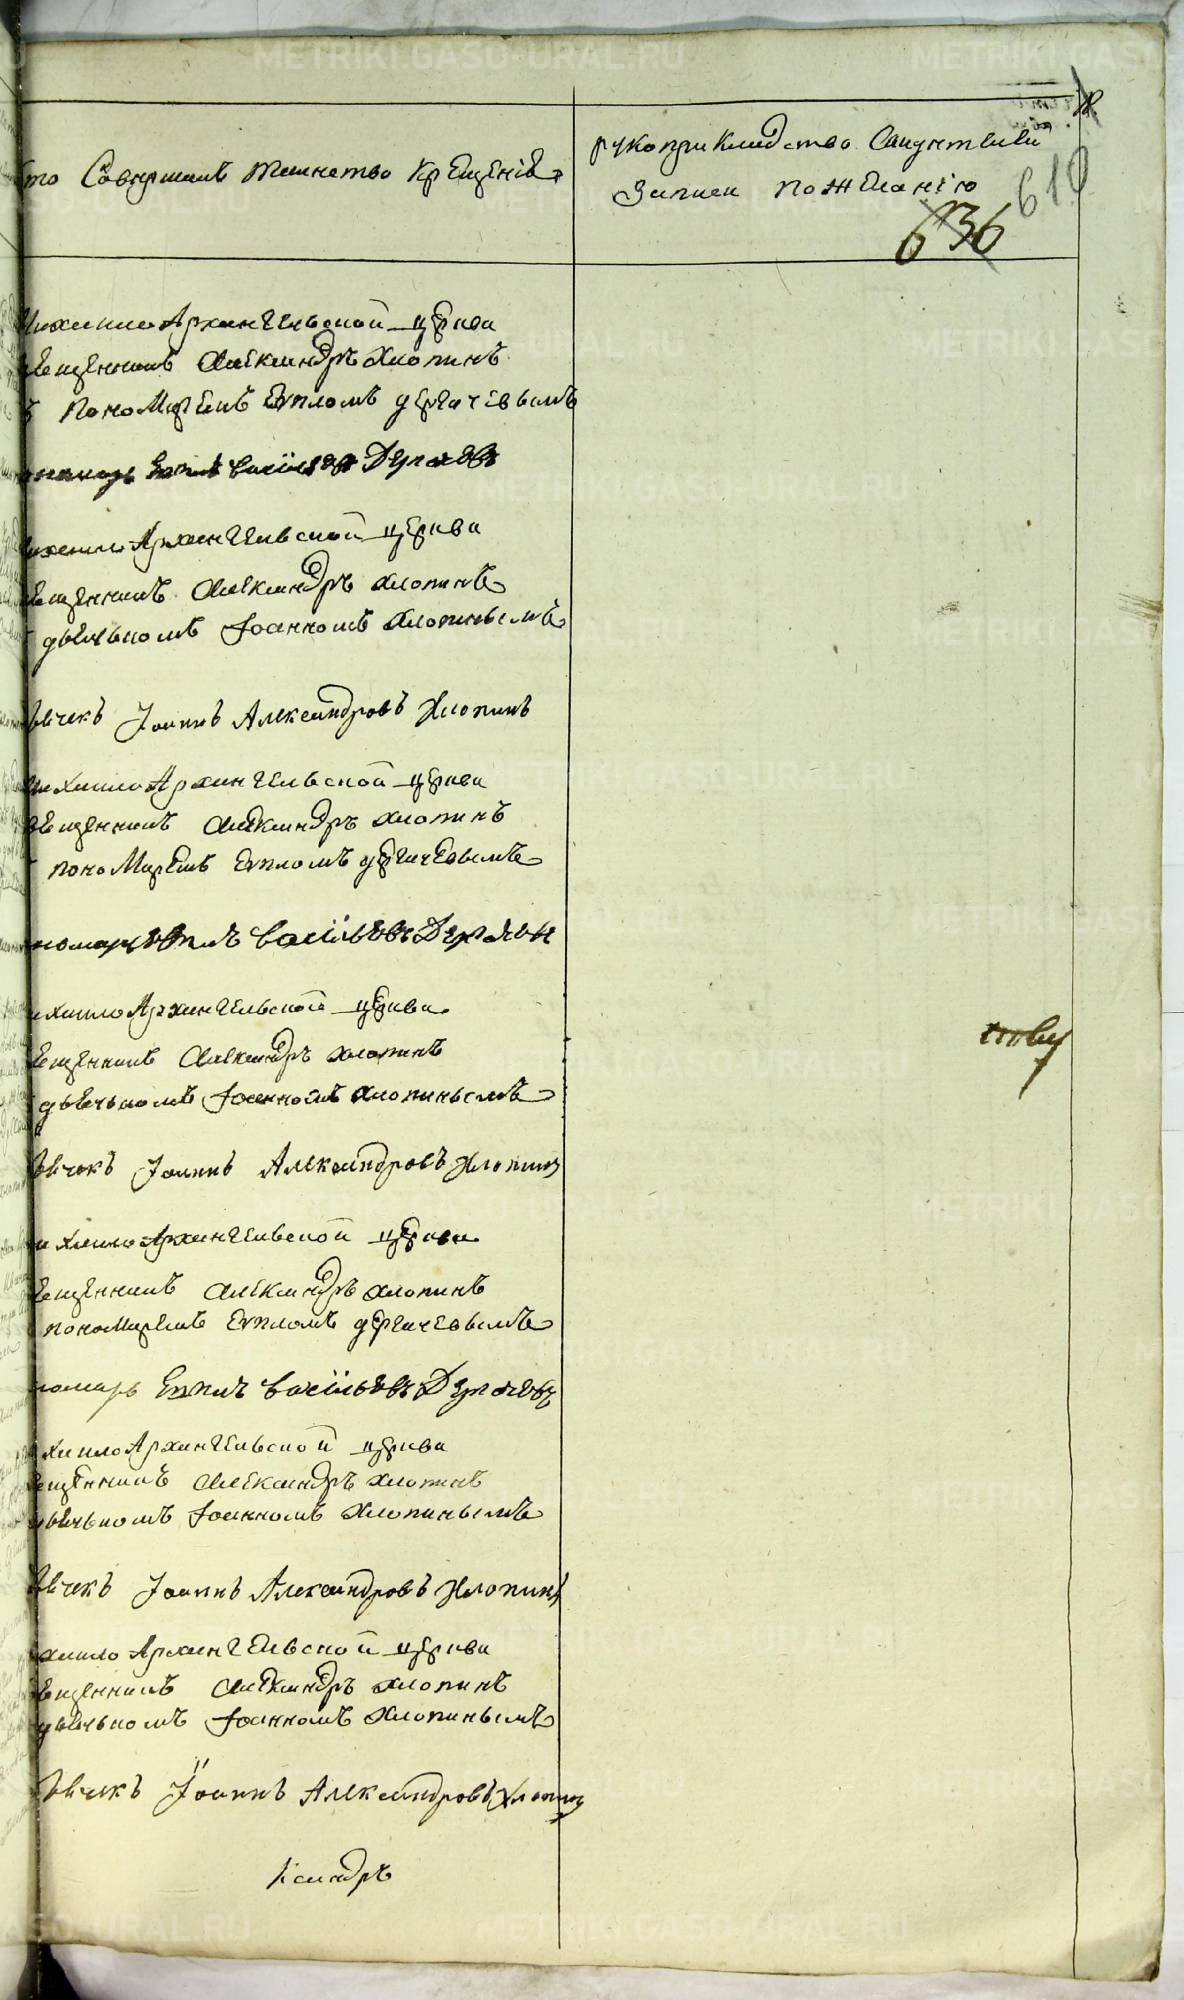 кто Совершалъ таинство Крещенія
рукоприкладство Свидѣтелей
записи пожеланію
610
636
Михаило Архангельской церкви
священникъ Александръ Хлопинъ
съ пономаремъ Еѵпломъ дергачевымъ
пономарь Еѵплъ Васильевъ Дергачевъ
Михаило Архангельской церкви
священникъ Александръ Хлопинъ
дьячькомъ Іоанномъ Хлопинымъ
дьячекъ Іоаннъ Александровъ Хлопинъ
Михаило Архангельской церкви
священникъ Александръ Хлопинъ
пономаремъ Еѵпломъ дергачевымъ
пономарь Еѵплъ Васильевъ Дергачевъ
Михаило Архангельской церкви
священникъ Александръ Хлопинъ
дьячькомъ Іоанномъ Хлопинымъ
дьячекъ Іоаннъ Александровъ Хлопинъ
Михаило Архангельской церкви
священникъ Александръ Хлопинъ
пономаремъ Еѵпломъ дергачевымъ
пономарь Еѵплъ Васильевъ Дергачевъ
Михаило Архангельской церкви
священникъ Александръ Хлопинъ
дьячькомъ Іоанномъ Хлопинымъ
дьячекъ Іоаннъ Александровъ Хлопинъ
Михаило Архангельской церкви
священникъ Александръ Хлопинъ
дьячькомъ Іоанномъ Хлопинымъ
дьячекъ Іоаннъ Александровъ Хлопинъ
ксандръ
METRIKI.GASO-URAL.RU